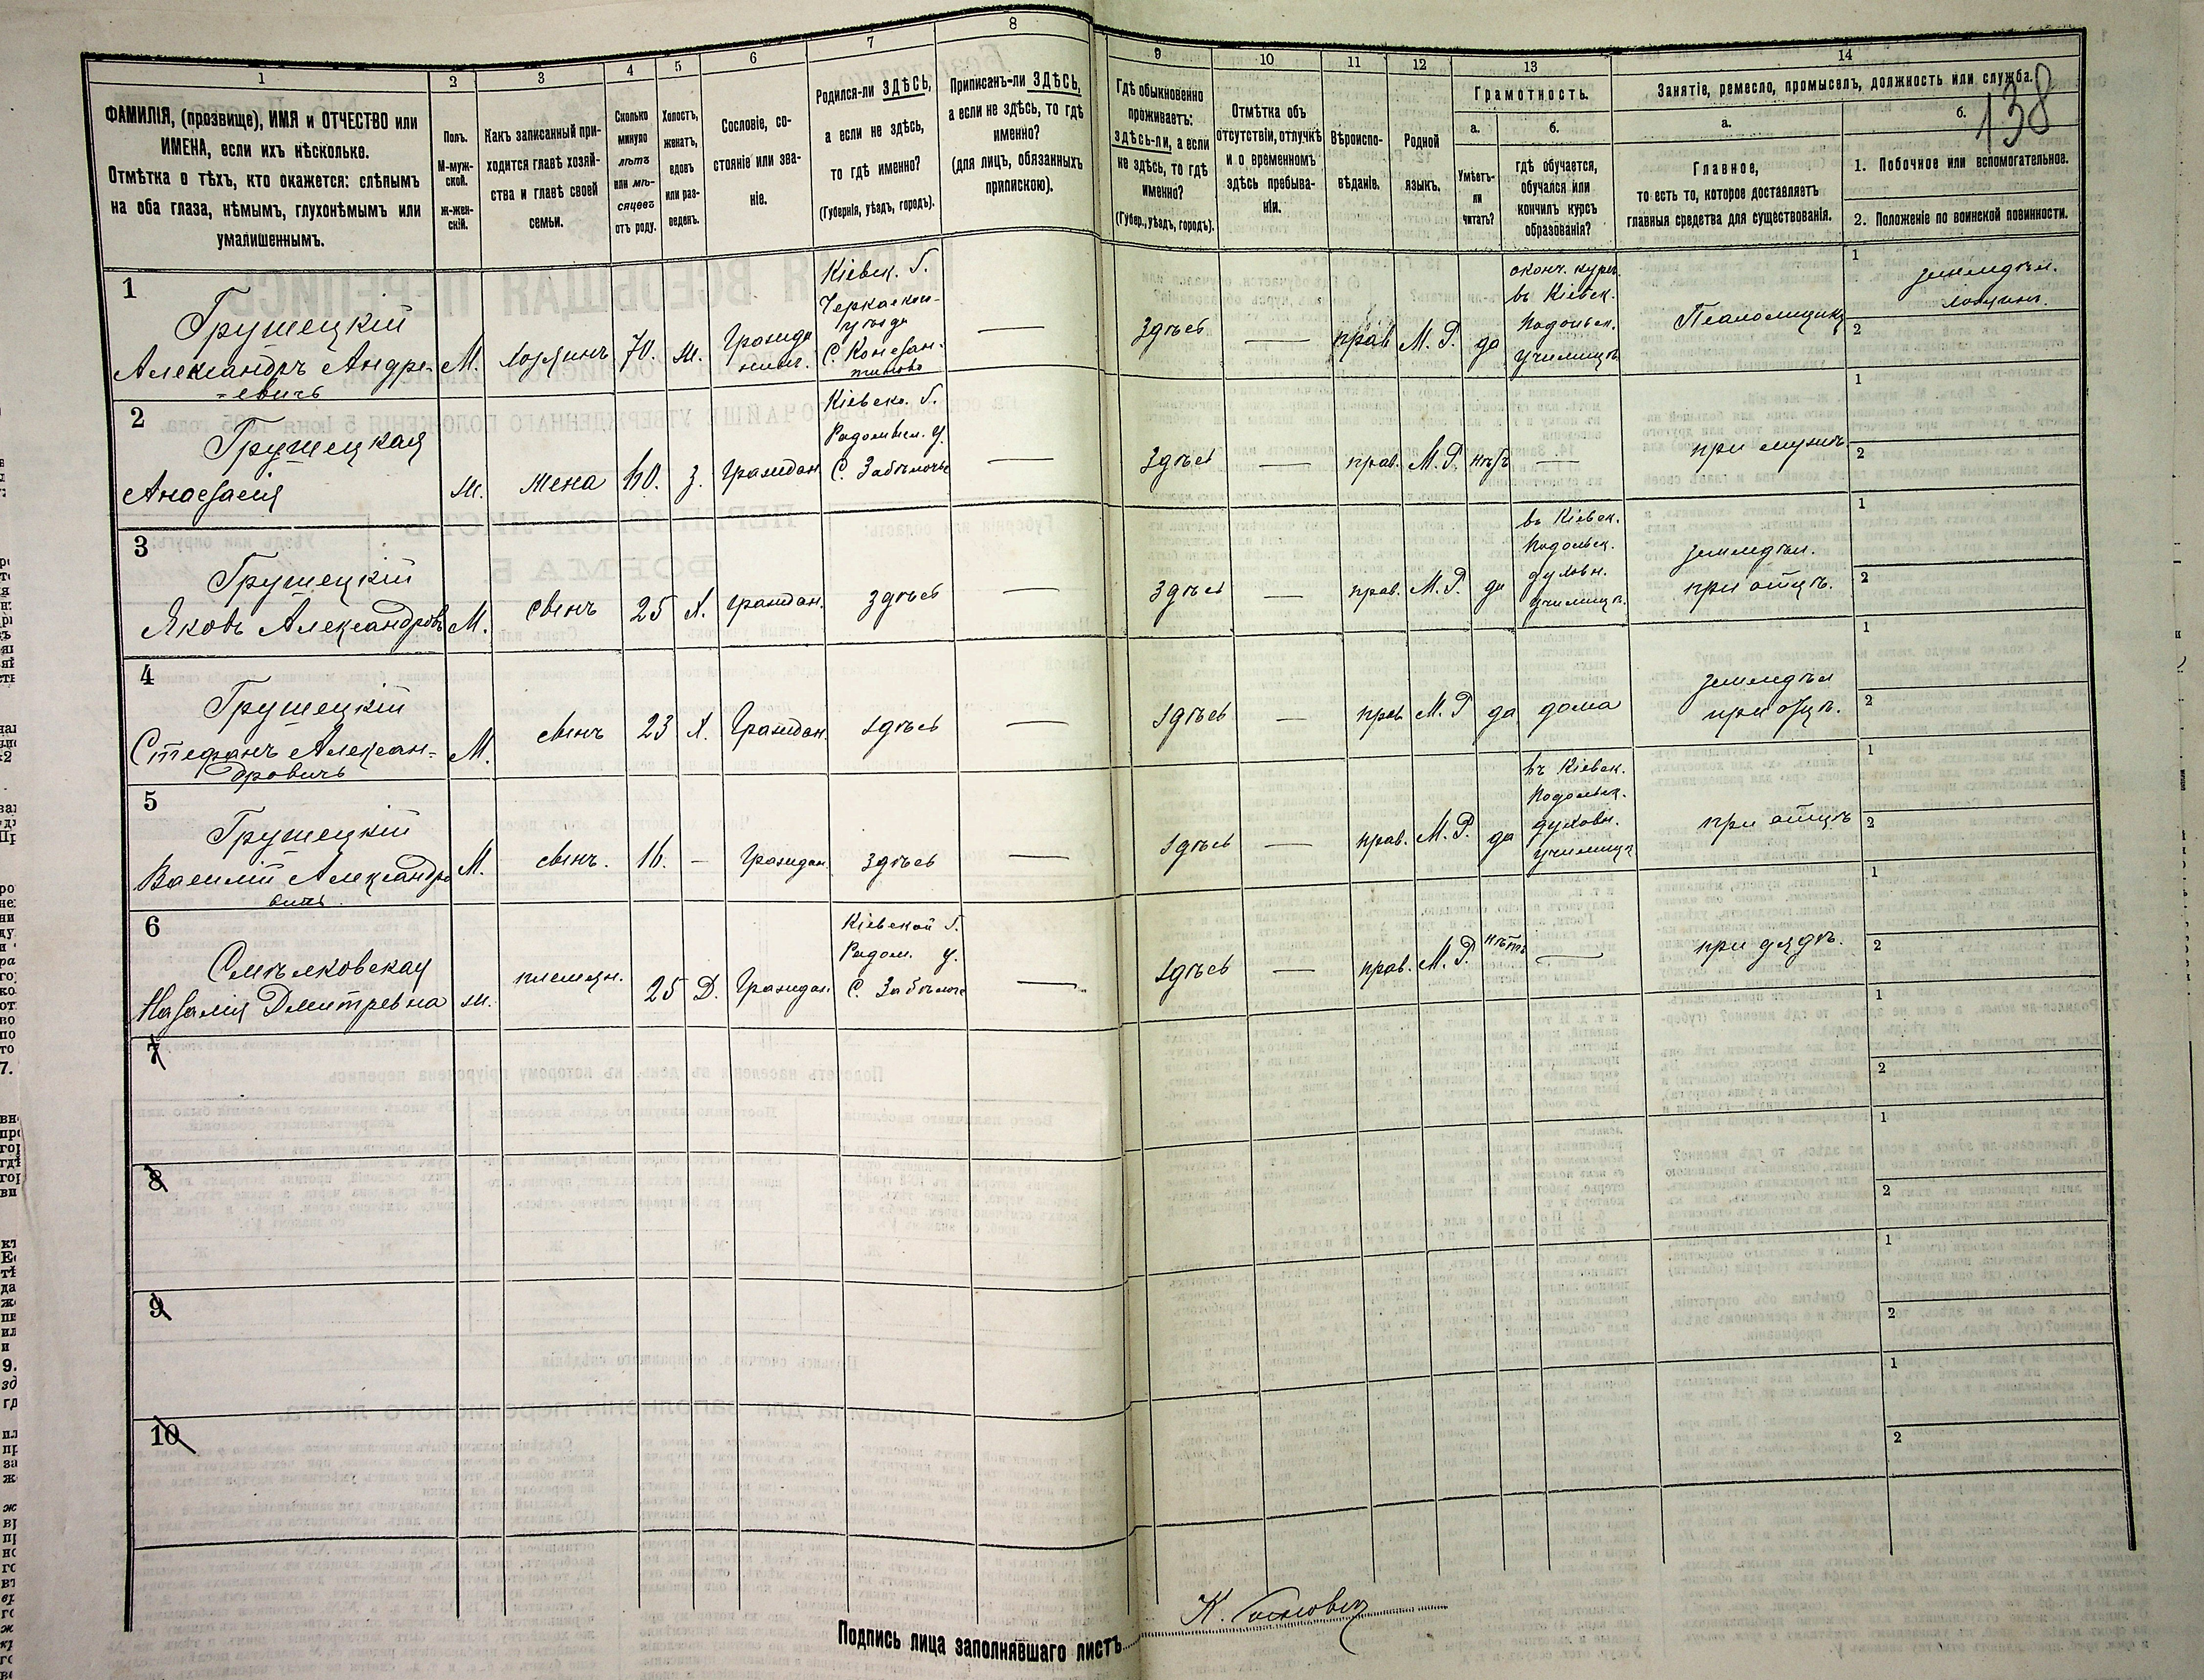 1
2
3
4
5
6
7
8
9
10
11
12
13
14
138
ФАМИЛІЯ, (прозвище), ИМЯ и ОТЧЕСТВО или
ИМЕНА, если ихъ нѣсколько.
Отмѣтка о тѣхъ, кто окажется: слѣпымъ
на оба глаза, нѣмымъ, глухонѣмымъ или
умалишеннымъ.
Полъ.
М-муж-
ской.
ж-жен-
скій.
Какъ записанный при-
ходится главѣ хозяй-
ства и главѣ своей
семьи.
Сколько
минуло
лѣтъ
или мѣ-
сяцевъ
отъ роду.
Холостъ,
женатъ,
вдовъ
или раз-
веденъ.
Сословіе, со-
стояніе или зва-
ніе.
Родился-ли ЗДѢСЬ,
а если не здѣсь,
то гдѣ именно?
(Губернія, уѣздъ, городъ).
Приписанъ-ли ЗДѢСЬ,
а если не здѣсь, то гдѣ
именно?
(для лицъ, обязанныхъ
припискою).
Гдѣ обыкновенно
проживаетъ:
здѣсь-ли, а если
не здѣсь, то гдѣ
именно?
(Губер., уѣздъ, городъ).
Отмѣтка объ
отсутствіи, отлучкѣ
и о временномъ
здѣсь пребыва-
ніи.
Вѣроиспо-
вѣданіе.
Родной
языкъ.
Грамотность.
а.
Умѣетъ-
ли
читать?
б.
Гдѣ обучается,
обучался или
кончилъ курсъ
образованія?
Занятіе, ремесло, промыселъ, должность или служба.
а.
Главное,
то есть то, которое доставляетъ
главныя средства для существованія.
б.
1. Побочное или вспомогательное.
2. Положеніе по воинской повинности.
1
Грушецкій
Александръ Андре-
=евичъ
М.
хозяинъ
70.
ж.
Кіевск. Г.
С. Констан-
здѣсь
прав
М. Р.
да
оконч. курс.
въ Кіевск.
Подольск.
училищѣ
Псаломщикъ
1
земледѣл.
хозяинъ.
2
2
Грушецкая
Анасѳасія
ж.
жена
60.
з.
Граждан
Кіевск. Г.
Радомысл. у.
С. Забѣлочье
здѣсь
прав.
М. Р.
нѣтъ
при мужѣ.
1
2
3
Грушецкій
Яковъ Александров
М.
сынъ
25
х.
граждан.
здѣсь
здѣсь
прав.
М. Р.
да
въ Кіевск.
Подольск.
духовн.
училищѣ.
земледѣл.
при отцѣ.
1
2
4
Грушецкій
Стефанъ Алексан-
дровичъ
М.
сынъ
23
х.
Граждан.
здѣсь
здѣсь
прав
М. Р
да
дома
земледѣл
при отцѣ.
1
2
5
Грушецкій
Василій Александро
вичъ.
М.
сынъ.
16.
Граждан.
здѣсь
здѣсь
прав.
М. Р.
да
въ Кіевск.
Подольск.
духовн.
училищѣ
при отцѣ
1
2
6
Смѣлковская
Наѳалія Дмитревна
ж.
племян.
25
Д.
Граждан
Кіевской Г.
Радом. у.
С. Забѣлоч
здѣсь
прав.
М. Р.
нѣтъ
при дядѣ.
1
2
7
1
2
8
1
2
9
1
2
10
1
2
Подпись лица заполнявшаго листъ